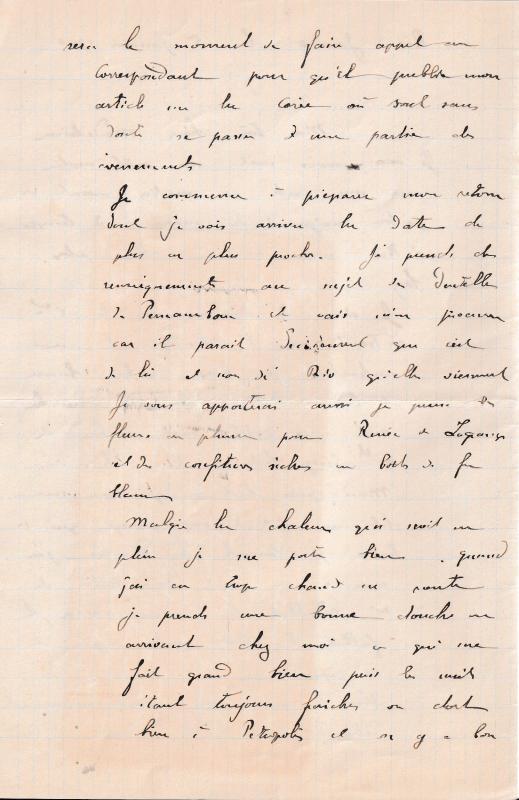 sera le moment de faire appel au
correspondant pour qu'il publie mon
article sur la Corée où vont sans
doute se passer une partie des
évènements
Je commence à préparer mon retour
dont je vois arriver la date de
plus en plus proche. Je prends des
renseignements au sujet des dentelles
de Pernambouc et vais m'en procurer
car il parait décidément que c'est
de là et non de Rio qu'elles viennent
Je vous apporterai aussi je pense des
fleurs en plumes pour Renée de
et des confitures sèches en boîte de fer
blanc
Malgré la chaleur qui sévit en
plein je me porte bien. quand
j'ai eu trop chaud en route
je prends une bonne douche en
arrivant chez moi ce qui me
fait grand bien puis les nuits
étant toujours fraiches on dort
bien à Petropolis il n'y a bon